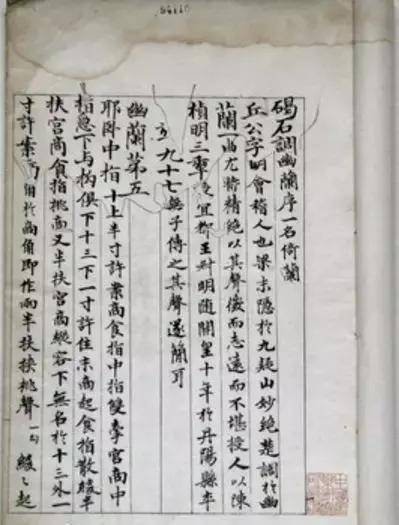 碣石調幽蘭序一名倚蘭
丘公字明會稽人也梁末隱於九疑山妙絕楚調於幽
蘭一曲尤特精絕以其聲微而志遠而不堪授人以陳
禎明三年授宜都王叔明隨開皇十年於丹陽縣卒
九十七無子傳之其聲遂簡耳
幽蘭第五
耶卧中指十上半寸許案商食指中指雙牽宮商中
指急下与拘俱下十三下一寸許住末商起食指散緩半
扶宮商食指挑商又半扶宮商縱容下無名於十三外一
寸許案商角於商角即作兩半扶挾挑聲一句緩〻起